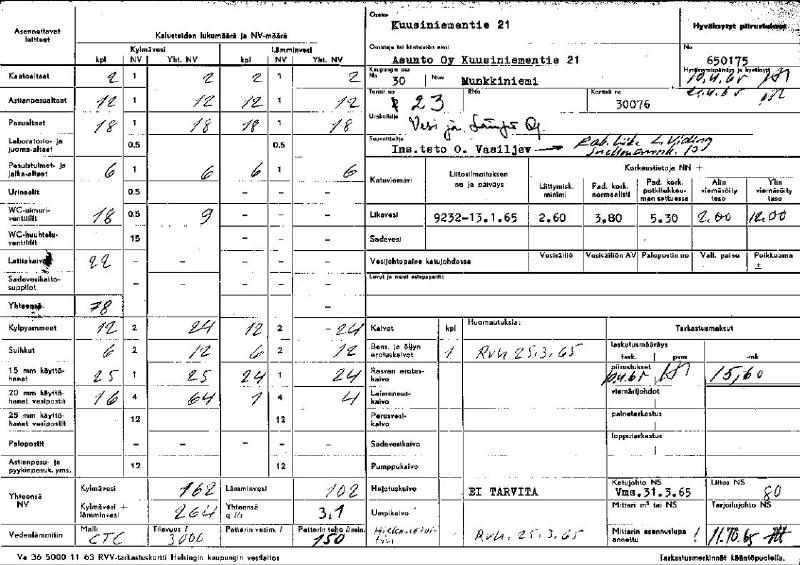 Asennettavat laitteet
Kalusteiden lukumäärä ja NV-määrä
Kylmävesi Lämminvesi
kpl NV Yht. NV kpl NV Yht. NV
Kaatoaltaat 2 1 2 2 1 2
Astianpesualtaat 12 1 12 12 1 12
Pesualtaat 18 1 18 18 1 18
Laboratorio- ja juoma-altaat 0.5 0.5
Pesuistuimet- ja jalka-altaat 6 1 6 6 1 6
Urinaalit 0.5 – – – –
WC-simuri-venttiilit 18 0.5 9 – – –
WC-huuhtelu-venttiilit 15 – – –
Lattiakaivot 22 – – – – –
Sadevesikatto-suppilot – – – – –
Yhteensä 78
Kylpyammeet 12 2 24 12 2 24
Suihkut 6 2 12 6 2 12
15 mm käyttö-hanat 25 1 25 24 1 24
20 mm käyttö-hanat vesipostit 16 4 64 1 4 4
25 mm käyttö-hanat vesipostit 12 12
Palopostit – – – – –
Astianpesu- ja pyykinpesuk. yms. 12 12
Yhteensä NV
Kylmävesi 162 Lämminvesi 102
Kylmävesi + lämminvesi 264 Yhteensä q l/s 3,1
Vedenlämmitin Malli CTC Tilavuus l 3000 Patterin vesim. l Patterin teho l/min. 150
Osoite
Kuusiniementie 21
Omistaja tai kiinteistön nimi
Asunto Oy Kuusiniementie 21
Kaupungin osa
No 30 Nimi Munkkiniemi
Tontti no 23 RNo Kortteli no 30076
Urakoitsija Vesi ja Lämpö Oy.
Suunnittelija
Ins.tsto O. Vasiljev
Hyväksytyt piirustukset
No
650175
Hyväksymispäivä ja käsitellyt
Katuviemäri
Liitosilmoituksen no ja päiväys
Korkeustietoja NN +
Liittymisk. minimi Pad. kork. normaalisti Pad. kork. putkilukkeu-man sattuessa Alin viemäröity taso Ylin viemäröity taso
Likavesi 9232-13.1.65 2.60 3.80 5.30 2.00 12.00
Sadevesi
Vesijohtopaine katujohdossa Vesisäiliö Vesisäiliön AV Palopostin no Vall. paine Poikkeama ±
Luvut ja muut asiapaperit:
Kaivot kpl Huomautuksia:
Bens. ja öljyn erotuskaivot 1 RVK 25.3.65
Rasvan erotus-kaivo
Laimennus-kaivo
Perusvesi-kaivo
Sadevesikaivo
Pumppukaivo
Hajotuskaivo EI TARVITA
Umpikaivo
RVK. 25.3.65
Tarkastusmaksut
laskutusmääräys
tark. pvm -mk
piirustukset 15,60
viemärijohdot
painetarkastus
lopputarkastus
Katujohto NS Vma.31.3.65 Liitos NS 80
Mittari m³ tai NS Tarjoilujohto NS
Mittarin asennuslupa annettu 11.10.65
Va 36 5000 11 63 RVV-tarkastuskortti Helsingin kaupungin vesilaitos
Tarkastusmerkinnät kääntöpuolella.